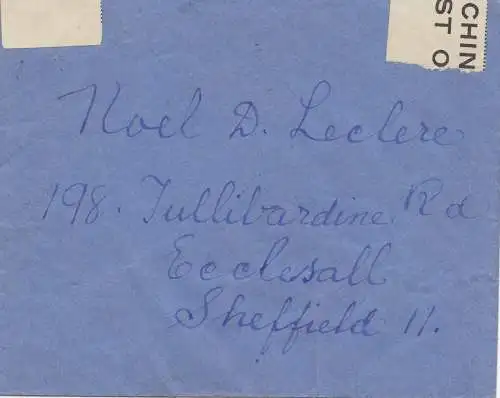 CHIN
ST O
Noel D. Leclere
198. Tullibardine Rd
Ecclesall
Sheffield 11.